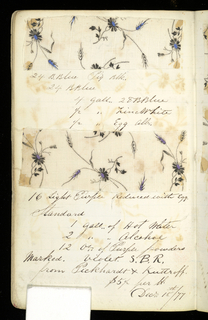 24 B Blue Egg Alb.
24 B Blue
4 Gall 28 B Blue
" Zinc White
" Egg Alb
16 Light Purple Reduced with Egg
Standard
1 Gall of Hot Water
2 " " Alcohol
12 Ozs of Purple powders
Marked. Violet S.B.R.
from Pickhardt & Kuttroff.
$5 per lb
Dec 15th/77